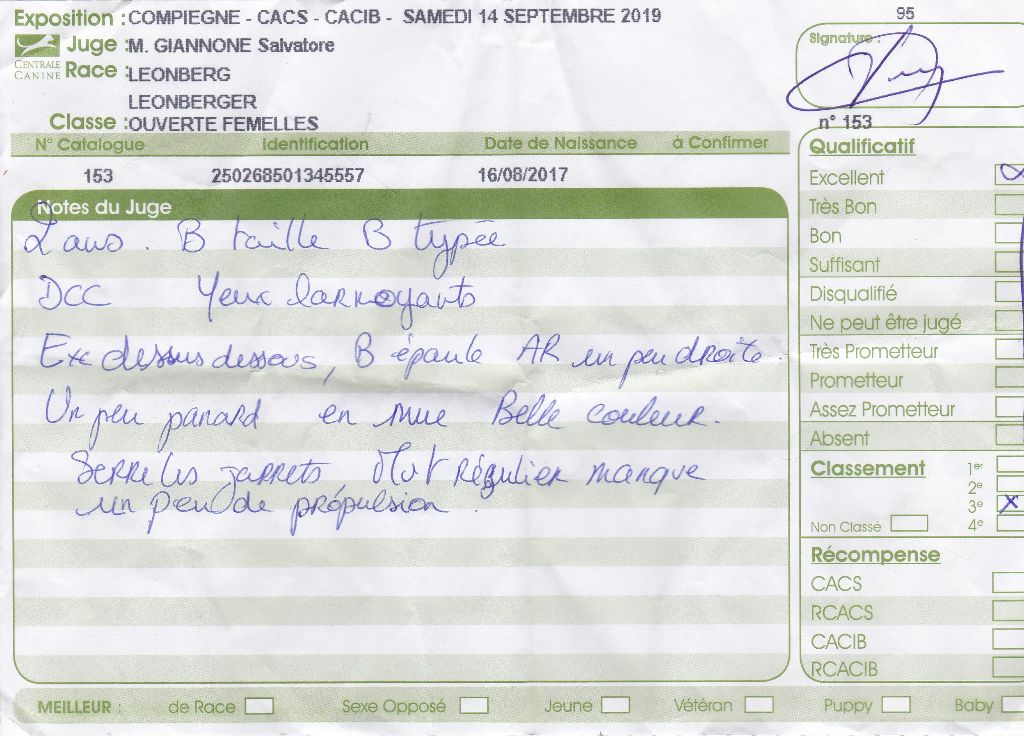 Exposition : COMPIEGNE - CACS - CACIB - SAMEDI 14 SEPTEMBRE 2019
95
CENTRALE CANINE
Juge : M. GIANNONE Salvatore
Race : LEONBERG
LEONBERGER
Classe : OUVERTE FEMELLES
Signature :
n° 153
N° Catalogue Identification Date de Naissance à Confirmer
153 250268501345557 16/08/2017
Notes du Juge
2 ans . B taille B typée
DCC Yeux larmoyants
Exc dessus dessous, B épaule AR un peu droite.
Un peu panard en mue Belle couleur.
Serre les jarrets, Mvt Régulier manque
un peu de propulsion .
Qualificatif
Excellent
Très Bon
Bon
Suffisant
Disqualifié
Ne peut être jugé
Très Prometteur
Prometteur
Assez Prometteur
Absent
Classement 1er
2e
3e X
Non Classé 4e
Récompense
CACS
RCACS
CACIB
RCACIB
MEILLEUR : de Race Sexe Opposé Jeune Vétéran Puppy Baby